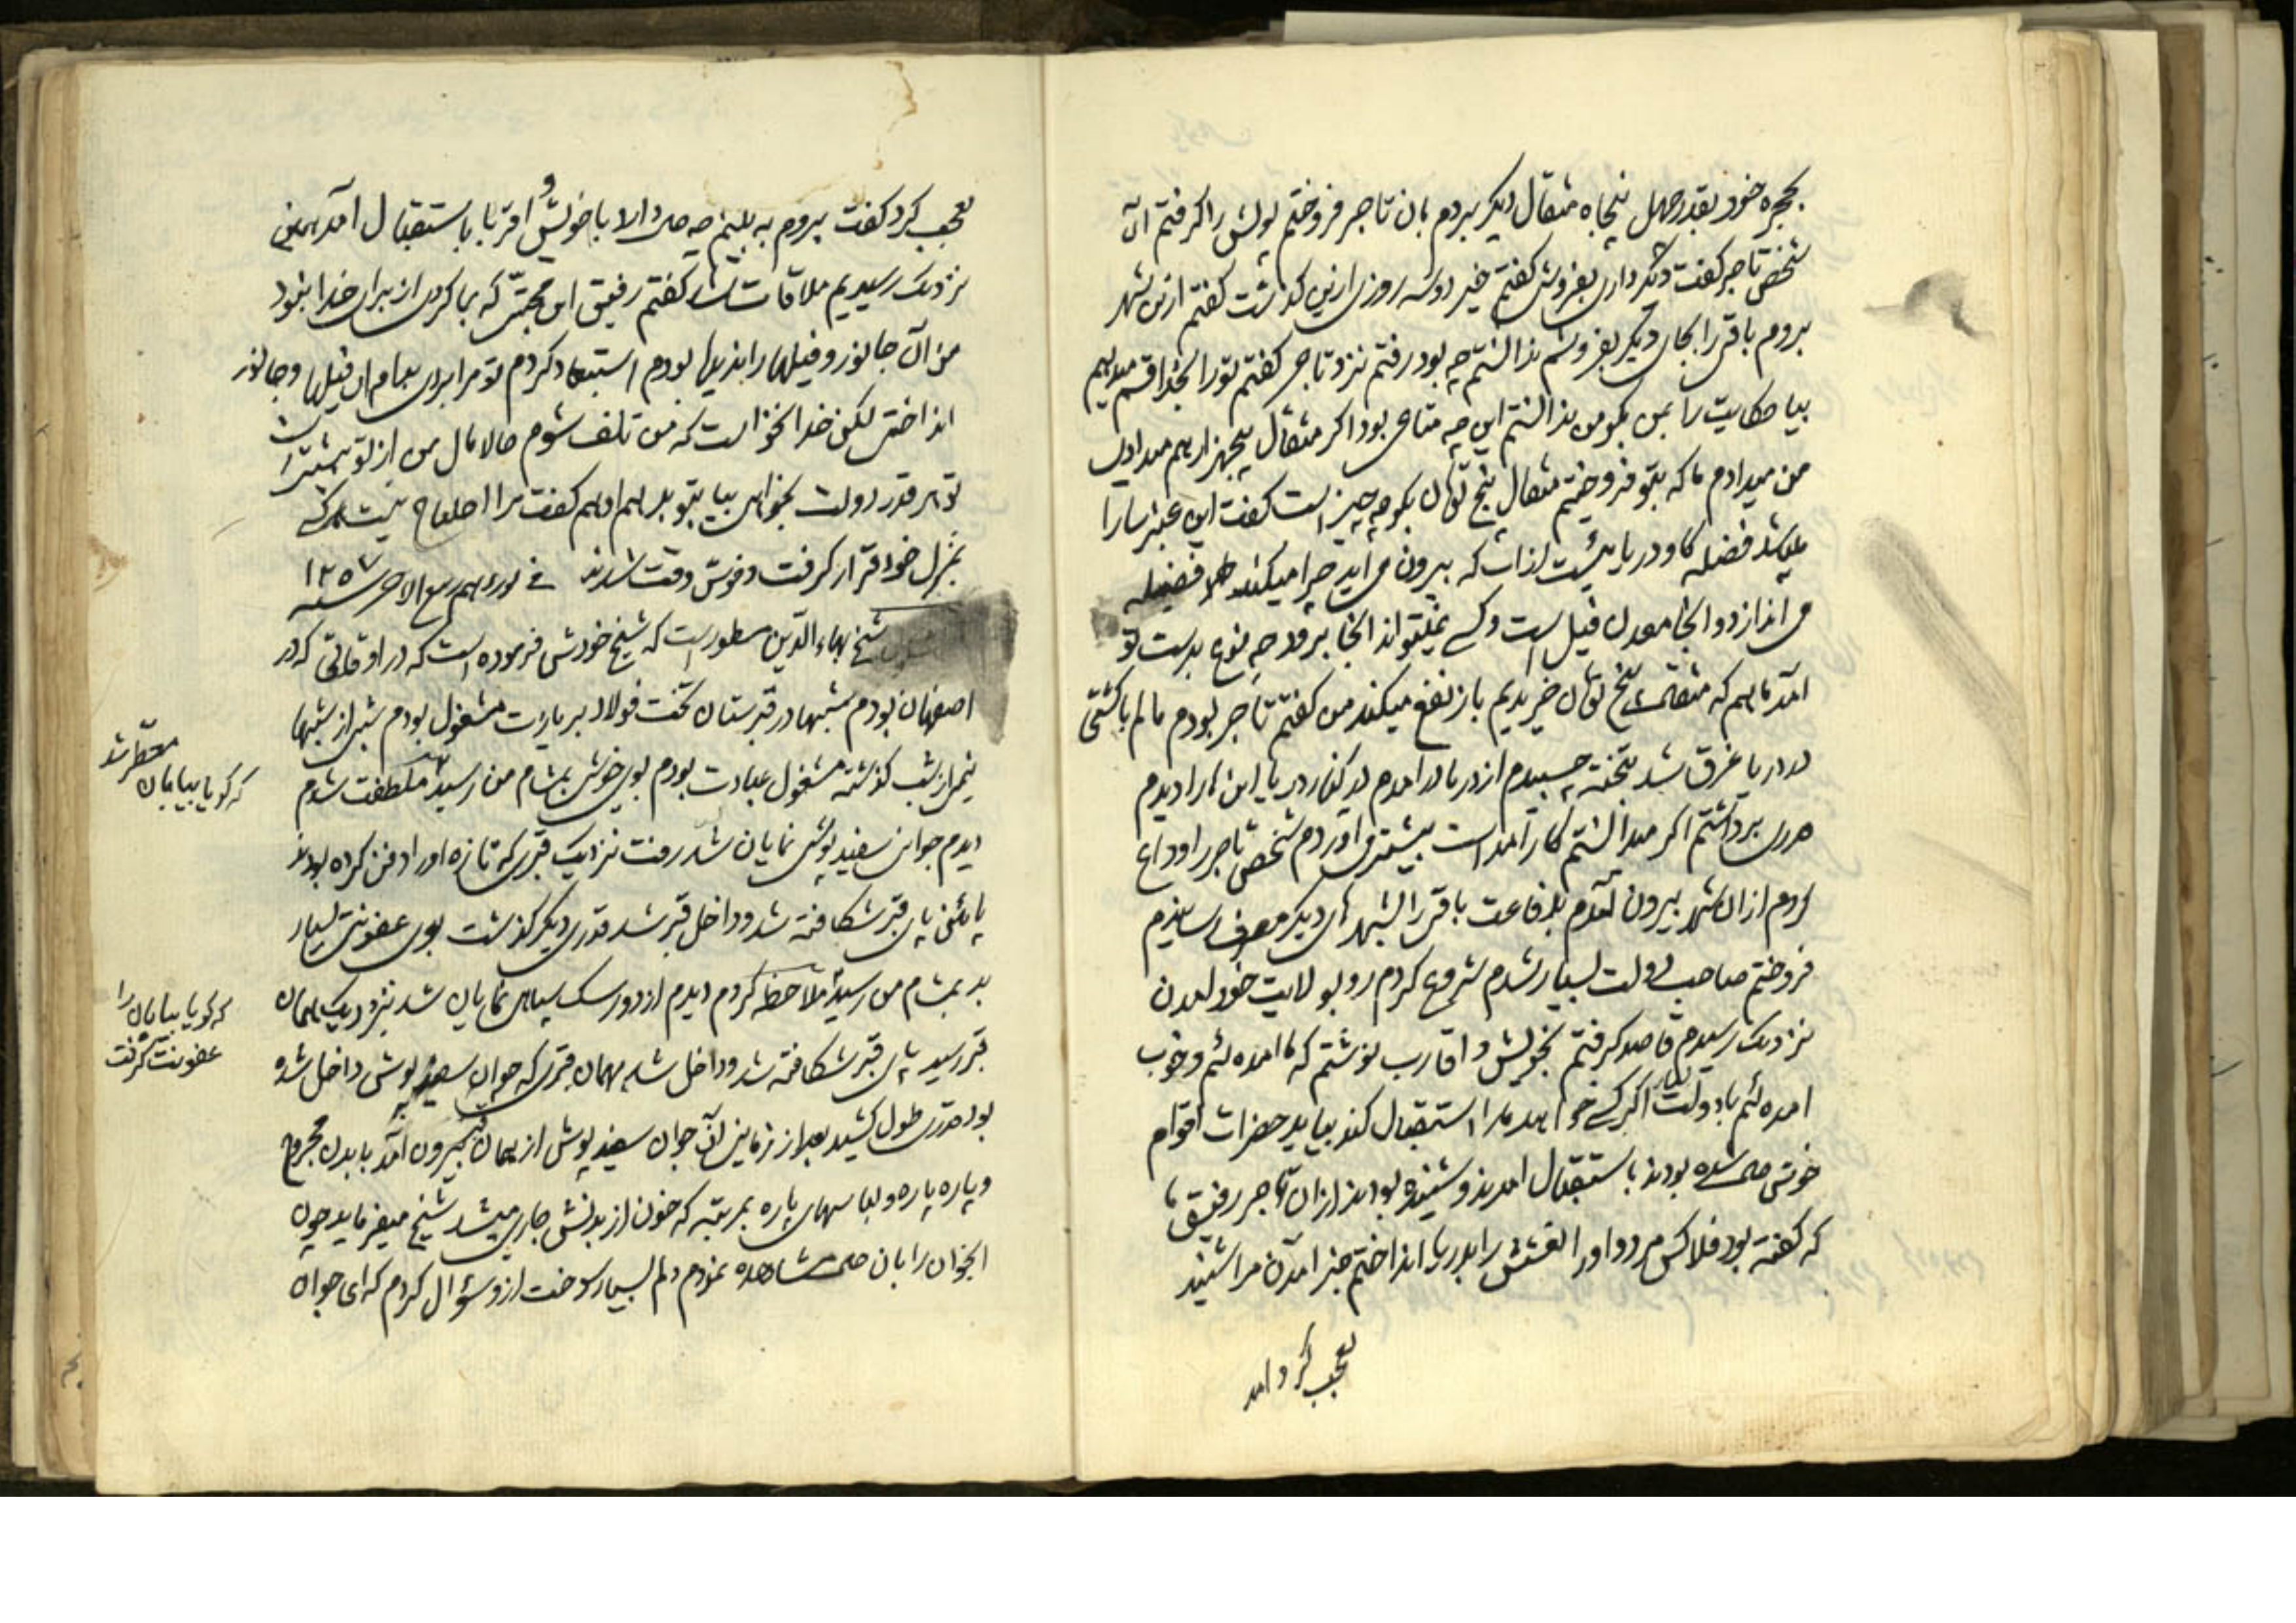 بحجره خود بقدر چهل پنجاه مثقال دیکر بردم بان تاجر فروختم پولش را کرفتم آن
شخص تاجر کفت دیکر داری بفروش کفتم خیر دو سه روزی ازین کذشت کفتم ازین شهر
بروم باقی را بجای دیکر بفروشم ندانستم چه بود رفتم نزد تاجر کفتم تو را بخدا قسم میدهم
بیا حکایت را بمن بکو من ندانستم این چه متاعی بود اکر مثقال پنجهزار هم میدادی
من میدادم ما که بتو فروختیم مثقال پنج تومان بکو چه چیز است کفت این عنبر سارا
میباشد فضله کاو دریایئیست لذات که بیرون می اید چرا میکند فضله
می اندازد و انجا معدن فیل است و کسی نمیتواند انجا برود چه نوع بدست تو
آمد ما هم که مثقالی پنج تومان خریدیم باز نفع میکند من کفتم تاجر بودم مالم با کشتی
در دریا غرق شد بتخته چسبیدم از دریا در امدم در کنار دریا این را دیدم
قدری برداشتم اکر میدانستم کار آمد است بیشتر می اوردم شخص تاجر را وداع
کردم از ان شهر بیرون آمدم بدفاعت باقی را بشهر های دیکر بمصرف رسانیدم
فروختم صاحب دولت بسیار شدم شروع کردم رو بولایت خود امدن
نزدیک رسیدم قاصد کرفتم بخویش و اقارب نوشتم که ما امده ایم و خوب
امده ایم با دولت بسیار اکر کسی خواهد ما را استقبال کند بیاید حضرات اقوام
خوشحال شده بودند باستقبال امدند و شنیده بودند از ان تاجر رفیق ما
که کفته بود فلا کس مرد و او را نعشش را بدریا انداختم خبر امدن مرا شنید
تعجب کرد امد
تعجب کرد کفت بروم به بینم چه حال دارد با خویش و اقربا باستقبال آمد همین
نزدیک رسیدیم ملاقات شد کفتم رفیق این محبتی که بما کردی از برای خدا نبود
من آن جانور و فیلها را ندیده بودم استبعاد کردم تو مرا بردی بدام ان فیلها و جانور
انداختی لکن خدا نخواست که من تلف شوم حالا مال من از تو بیشتر است
تو هر قدر دولت بخواهی بیا بتو بدهم او هم کفت مرا احتیاج نیست هر کی
بمنزل خود قرار کرفت و خوش وقت شدند فی نوزدهم ربیع الاخر سنه ۱۲۵۷
شیخ بهاء الدین مسطور است که شیخ خودش فرموده است که در اوقاتی که در
اصفهان بودم شبها در قبرستان تخت فولاد بریارت مشغول بودم شبی از شبها
نیمی از شب کذشته مشغول عبادت بودم بوی خوشی بمشام من رسید ملتفت شدم
که کویا بیابان معطر شد
دیدم جوانی سفید پوش نمایان شد رفت نزدیک قبری که تازه او را دفن کرده بودند
پائین پای قبر شکافته شد و داخل قبر شد قدری دیکر کذشت بوی عفونتی بسیار
بد بمشام من رسید ملاحظه کردم دیدم از دور سک سیاهی نمایان شد نزدیک همان
که کویا بیابان را عفونت کرفت
قبر رسید پای قبر شکافته شد و داخل شد بهمان قبری که جوان سفید پوش داخل شده
بود قدری طول کشید بعد از زمانی آن جوان سفید پوش از همان قبر بیرون آمد با بدن مجروح
و پاره پاره و لباسهای پاره بمرتبه که خون از بدنش جاری میشد شیخ میفرماید چون
انجوان را بان حال مشاهده نمودم دلم بسیار سوخت از و سؤال کردم که ای جوان